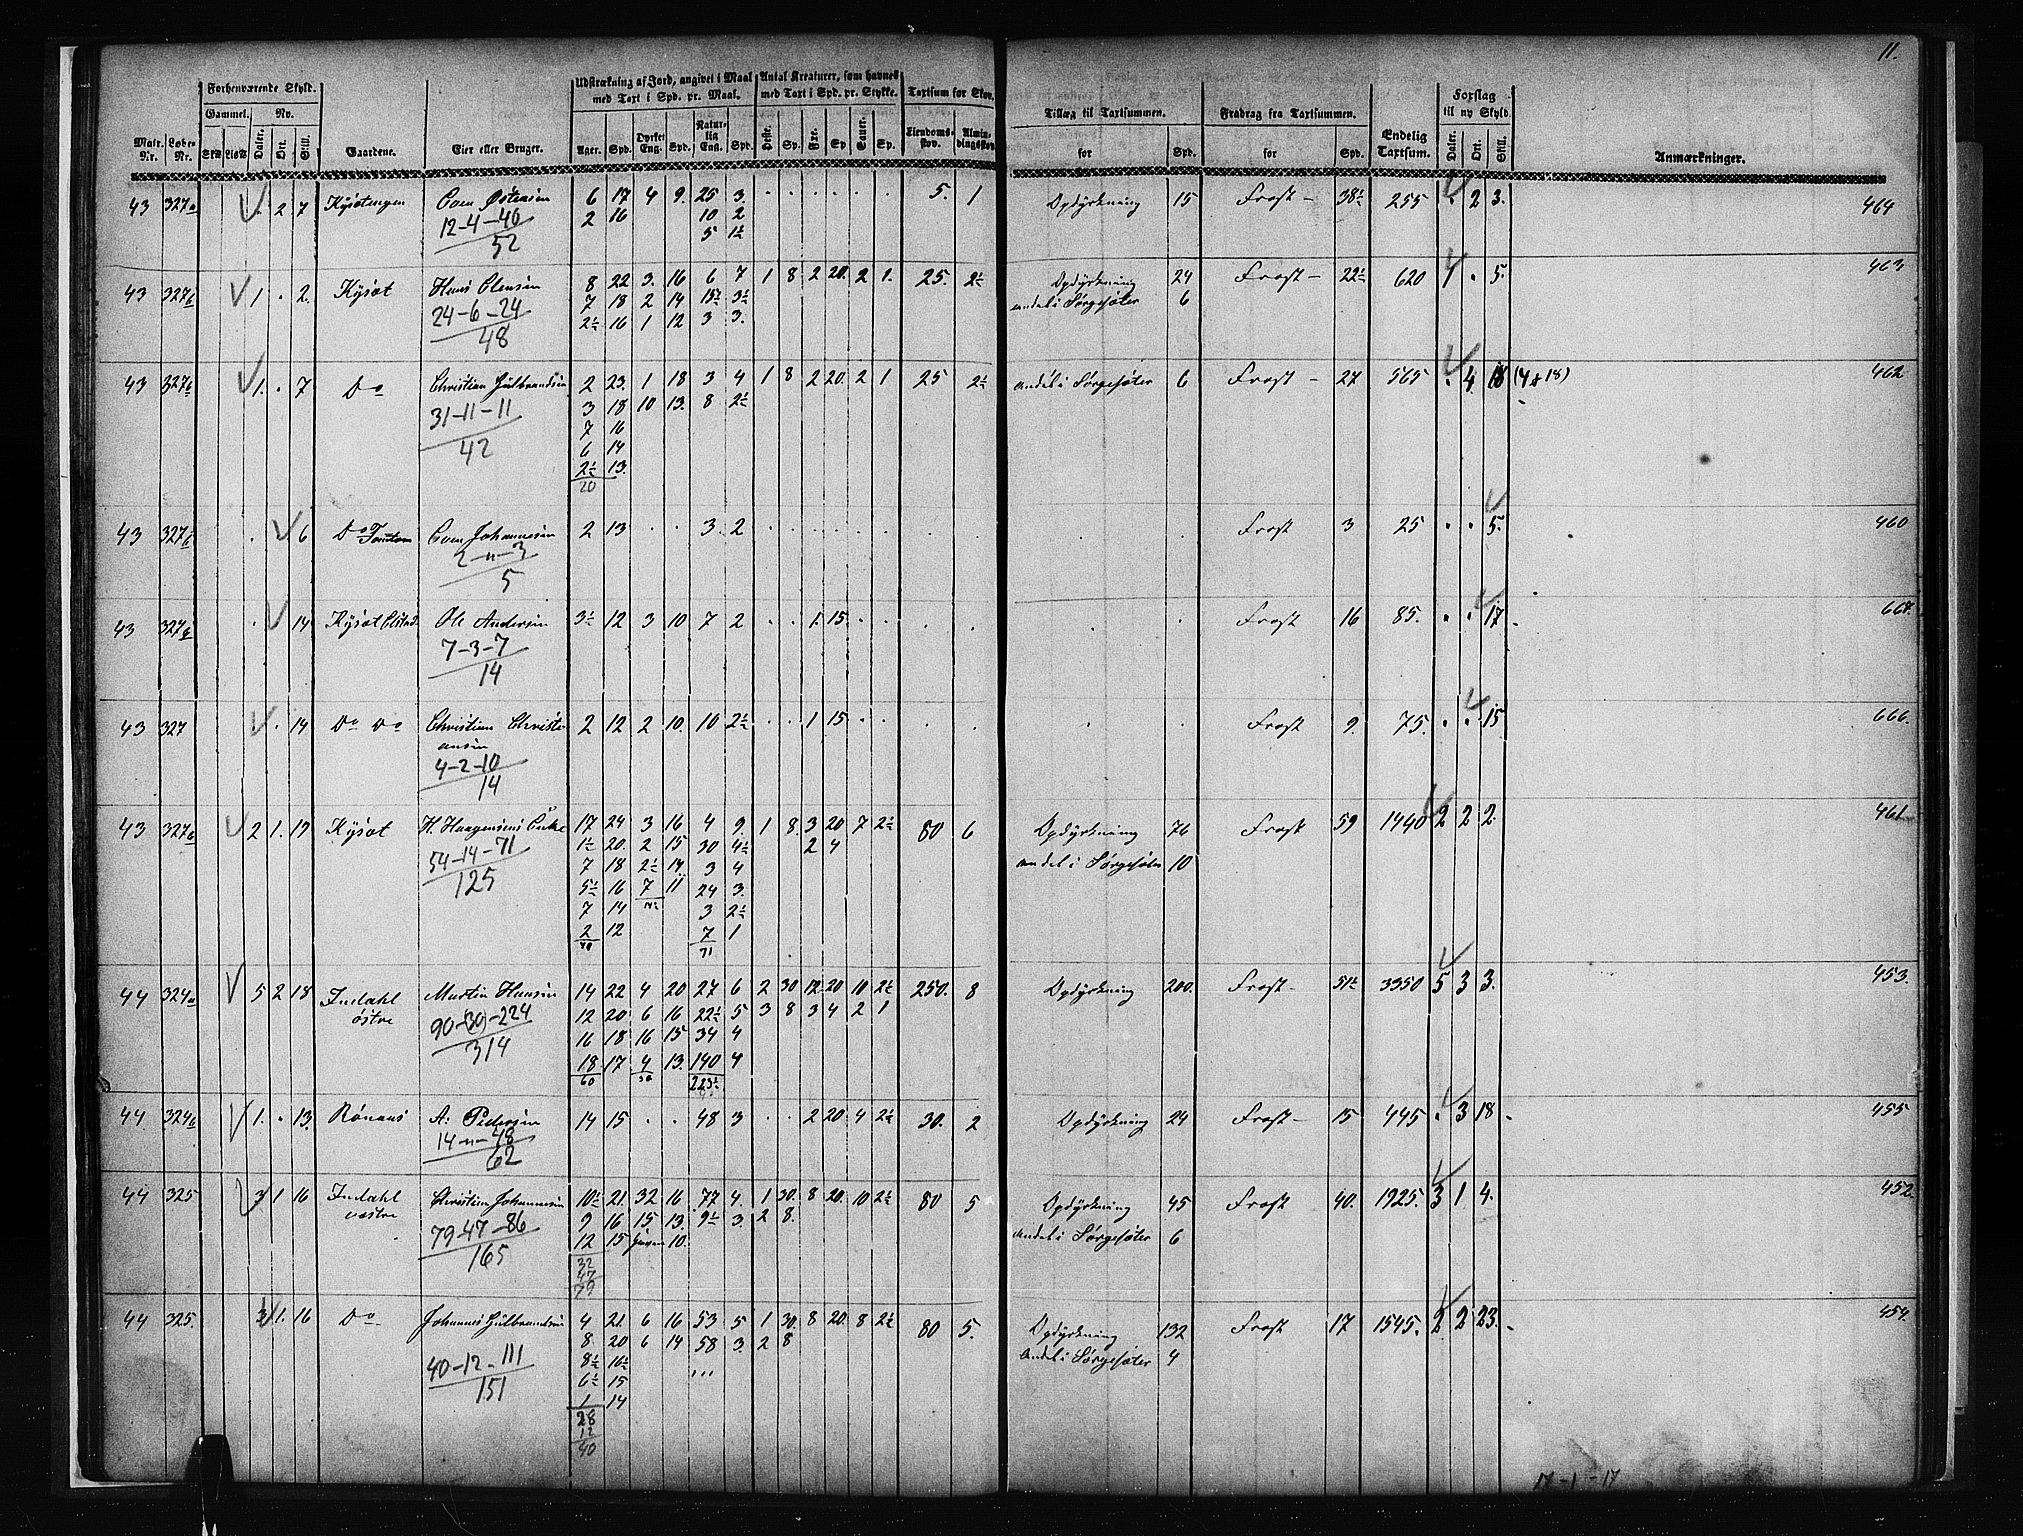 11.
Forhenværende Skyld.
Gammel. Ny.
Matr. Nr. Løbe-Nr. Daler. Ort. Skill. Gaardene. Eier eller Bruger.
Udstrækning af Jord, angivet i Maal med Taxt i Spd. pr. Maal.
Ager. Spd. Dyrket Eng. Spd. Naturlig Eng. Spd.
Antal Kreaturer, som havnes med Taxt i Spd. pr. Stykke.
Heste. Sp. Sauer. Sp.
Taxtsum for Skov.
Eiendomsskov. Almindingsskov
Tillæg til Taxtsummen. for Spd.
Fradrag fra Taxtsummen. for Spd.
Endelig Taxtsum.
Forslag til ny Skyld. Daler. Ort. Skill.
Anmærkninger.
43 327a . 2 7 Kysetengen 6 17 4 9. 25 3. . . . . . . 5. 1 Opdyrkning 15 Frost – 38½ 255 2 3. 464
12-4-40 2 16 10 2
52 5 1½
43 327b 1 . 2. Kyset Hans Olensen 8 22 3. 16 6 7 1 8 2 20. 2 1. 25. 2½ Opdyrkning 24 Frost – 22½ 620 1 . 5. 463
24-6-24 7 18 2 14 15½ 3½ andel i Sørgesæter 6
48 2½ 16 1 12 3 3.
43 327b 1. . 7 Do Christian Gulbrandsen 2 23. 1 18 3 4 1 8 2 20. 2 1 25 2½ andel i Sørgesæter 6 Frost – 27 565 . 4 18 (4 & 18) 462
31-11-11 3 18 10 13. 8 2½
42 7 16
6 14
2½ 13.
20
43 327b . 6 Do Johannesen 2 13 . . 3. 2 . . . . . . Frost 3 25 . . 5. 460
2-"-3
5
43 327b . 14 Kyset Ole Andersen 3½ 12 3 10 7 2 . . 1. 15 . . . . Frost 16 85. . . 17 668.
7-3-7
14
43 327 . 14 Do Do Christian Christiansen 2 12 2 10. 10 2½ . . 1 15 . . . . Frost 9. 75. . . 15 666.
4-2-10
14
43 327b 2 1. 19 Kyset H. Haagensens Enke 17 24 3 16 4 9. 1 8. 3 20 7 2½ 80 6 Opdyrkning 76 Frost 59 1440 2 2 2. 461
54-14-71 1½ 20. 2 15 30 4½ 2 4 andel i Sørgesæter 10
125 7 18 2½ 14. 3 4
5½ 16 7 11 24 3.
7 14 3 2½
2 12 7 1
71
44 324a 5 2 18 Indahl østre Martin Hansen 14 22 4 20 27 6 2 30 12. 20 10 2½ 250. 8 Opdyrkning 200. Frost – 51½ 3350 5 3 3. 453.
90-(30)-224 12 20. 6 16 22½ 5 3 8 3 4 2 1
314 16 18 16 15 34 4
18 17 4 13. 140 4
60 30 223½
44 324b 1. . 13. Rønaas A. Pedersen 14 15 . . 48 3 . . 2 20. 4 2½ 30. 2 Opdyrkning 24 Frost – 15 445 . 3 18 455
14-"-48
62
44 325 3 1 16 Indahl vestre Christian Johannesen 10½ 21. 32 16 77 4. 1 30. 8 20. 10 2½ 80 5 Opdyrkning 45 Frost 40. 1925. 3 1 4. 452
79-47-86 9 16 15 13. 9½ 3. 2 8. andel i Sørgesæter 6
165 12 15 10.
32
47
79
44 325. 3 1. 16 Do Johannes Gulbrandsen 4 21 6 16 53 5 1 30. 8 20. 8 2½ 80 5. Opdyrkning 132 Frost 17 1545. 2 2 23. 454.
40-12-111 8. 20 6 14 58 3. 2 8 andel i Sørgesæter 4
151 8½ 16½ 111
6½ 15
1 14
28
12
40
17-1-17